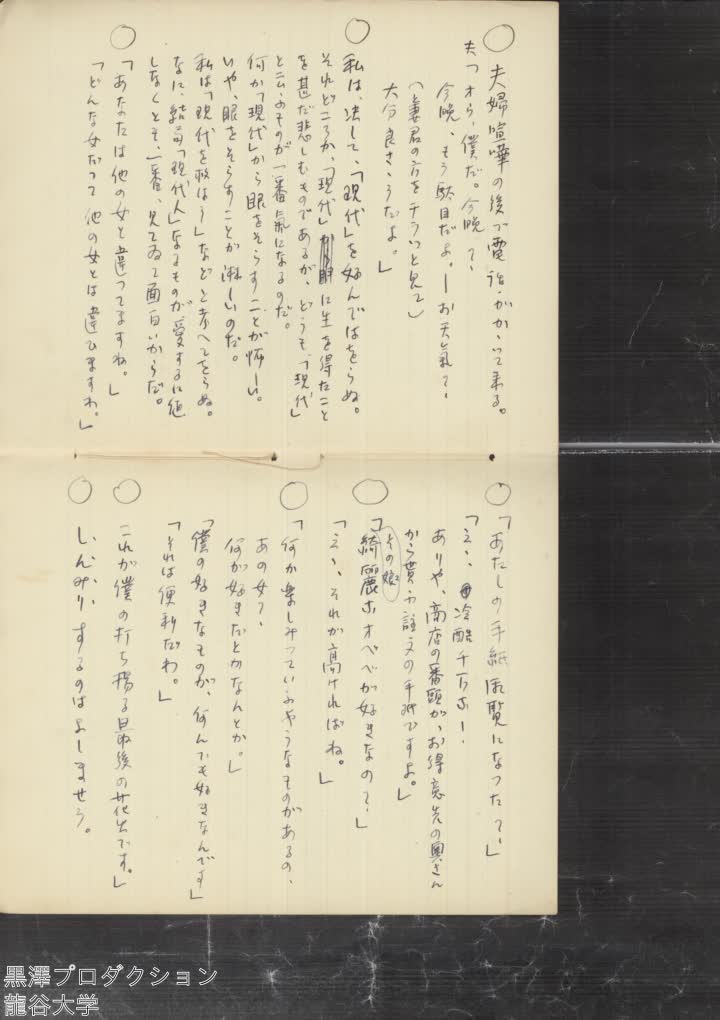 ○ 夫婦喧嘩の後で電話がかゝって来る。
夫「オゝ、僕だ。今晩？、
今晩、もう駄目だよ。―お天気？、
（と妻君の方をチラッと見て）
大分良さゝうだよ。」
○ 私は、決して、「現代」を好んではをらぬ。
それどころか、「現代」に生を得たこと
を甚だ悲しむものであるが、どうも、「現代」
と云ふものが一番気になるのだ。
何か「現代」から眼をそらすことが怖しい。
いや、眼をそらすことが淋しいのだ。
私は「現代を救はう」などと考へてをらぬ。
なに、結局「現代人」なるものが愛するに値
しなくとも、一番、見てゐて面白いからだ。
○「あなたは他の女と違ってますね。」
「どんな女だって他の女とは違ひますわ。」
○「あたしの手紙御覧になつた？、」
「えゝ、冷酷千万な！、
ありや、商店の番頭が、お得意先の奥さん
から貰ふ註文の手紙ですよ。」
○「その娘、綺麗なオベベが好きなの？、」
「えゝ、それが高ければね。」
○「何か楽しみっていふやうなものがあるの、
あの女？、
何が好きだとかなんとか。」
「僕の好きなものが、何んでも好きなんです」
「それは便利だわ。」
○ これが僕の打ち揚る最後の花火です。」
○ しんみりするのはよしませう。
黒澤プロダクション
龍谷大学